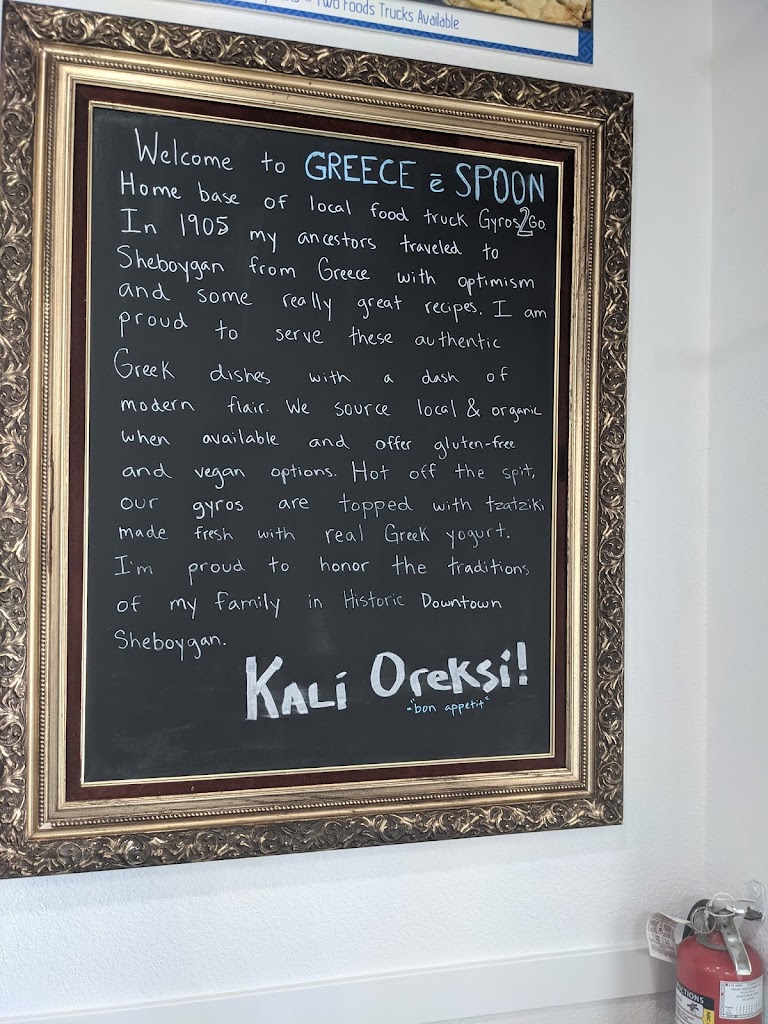 Two Foods Trucks Available
Welcome to GREECE ē SPOON
Home base of local food truck Gyros2Go.
In 1905 my ancestors traveled to
Sheboygan from Greece with optimism
and some really great recipes. I am
proud to serve these authentic
Greek dishes with a dash of
modern flair. We source local & organic
when available and offer gluten-free
and vegan options. Hot off the spit,
our gyros are topped with tzatziki
made fresh with real Greek yogurt.
I'm proud to honor the traditions
of my family in Historic Downtown
Sheboygan.
KALÍ Oreksi!
-"bon appetit"